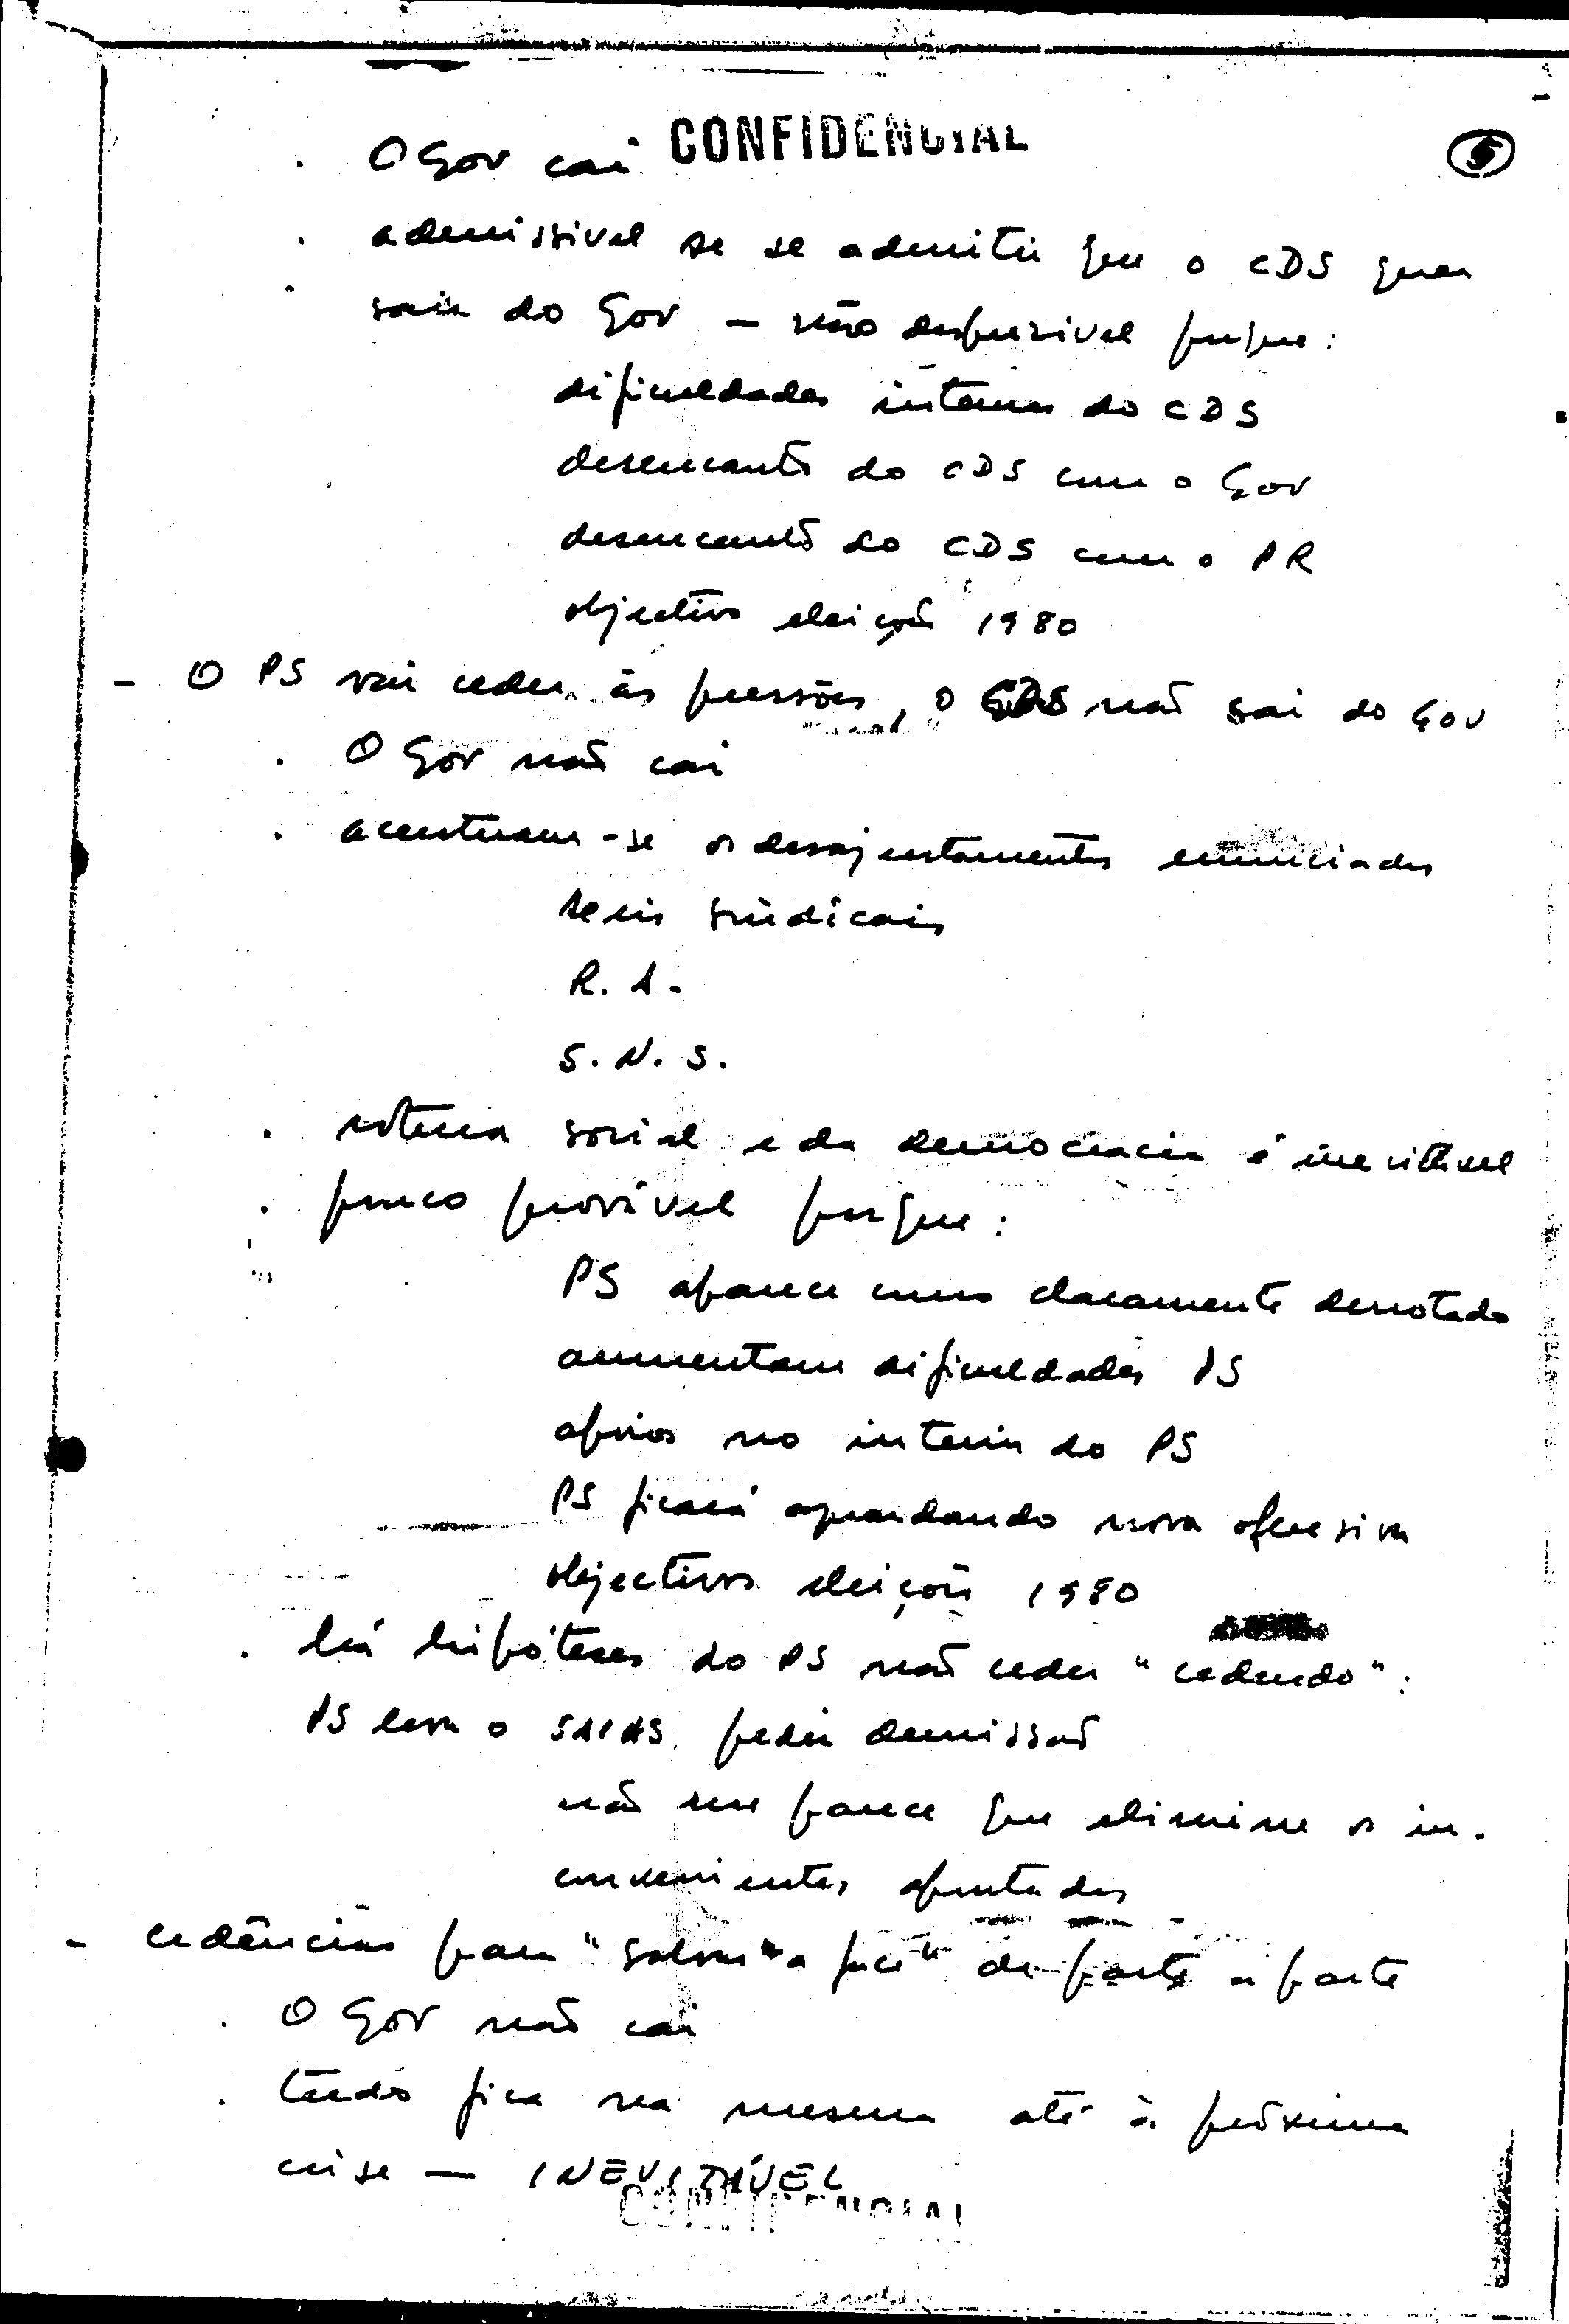 CONFIDENCIAL
5
. O Gov cai
. admissivel se se admitir que o CDS quer
sair do Gov — não desprezivel porque:
dificuldades internas do CDS
desencanto do CDS com o Gov
desencanto do CDS com o PR
objectivo eleições 1980
- O PS vai ceder às pressões, o CDS não sai do Gov
. O Gov não cai
. acentuam-se os desajustamentos enunciados
leis sindicais
R. A.
S. N. S.
. social e da democracia é inevitável
. pouco provável porque:
PS aparece como claramente derrotado
aumentam dificuldades PS
apoios no interior do PS
PS ficará aguardando nova ofensiva
objectivos eleições 1980
. há hipóteses do PS não ceder "cedendo":
PS leva o SAIAS pedir demissão
não me parece que elimine os in-
convenientes apontados
- cedências para "salvar a face" de parte a parte
. O Gov não cai
. tudo fica na mesma até à próxima
crise — INEVITÁVEL
CONFIDENCIAL